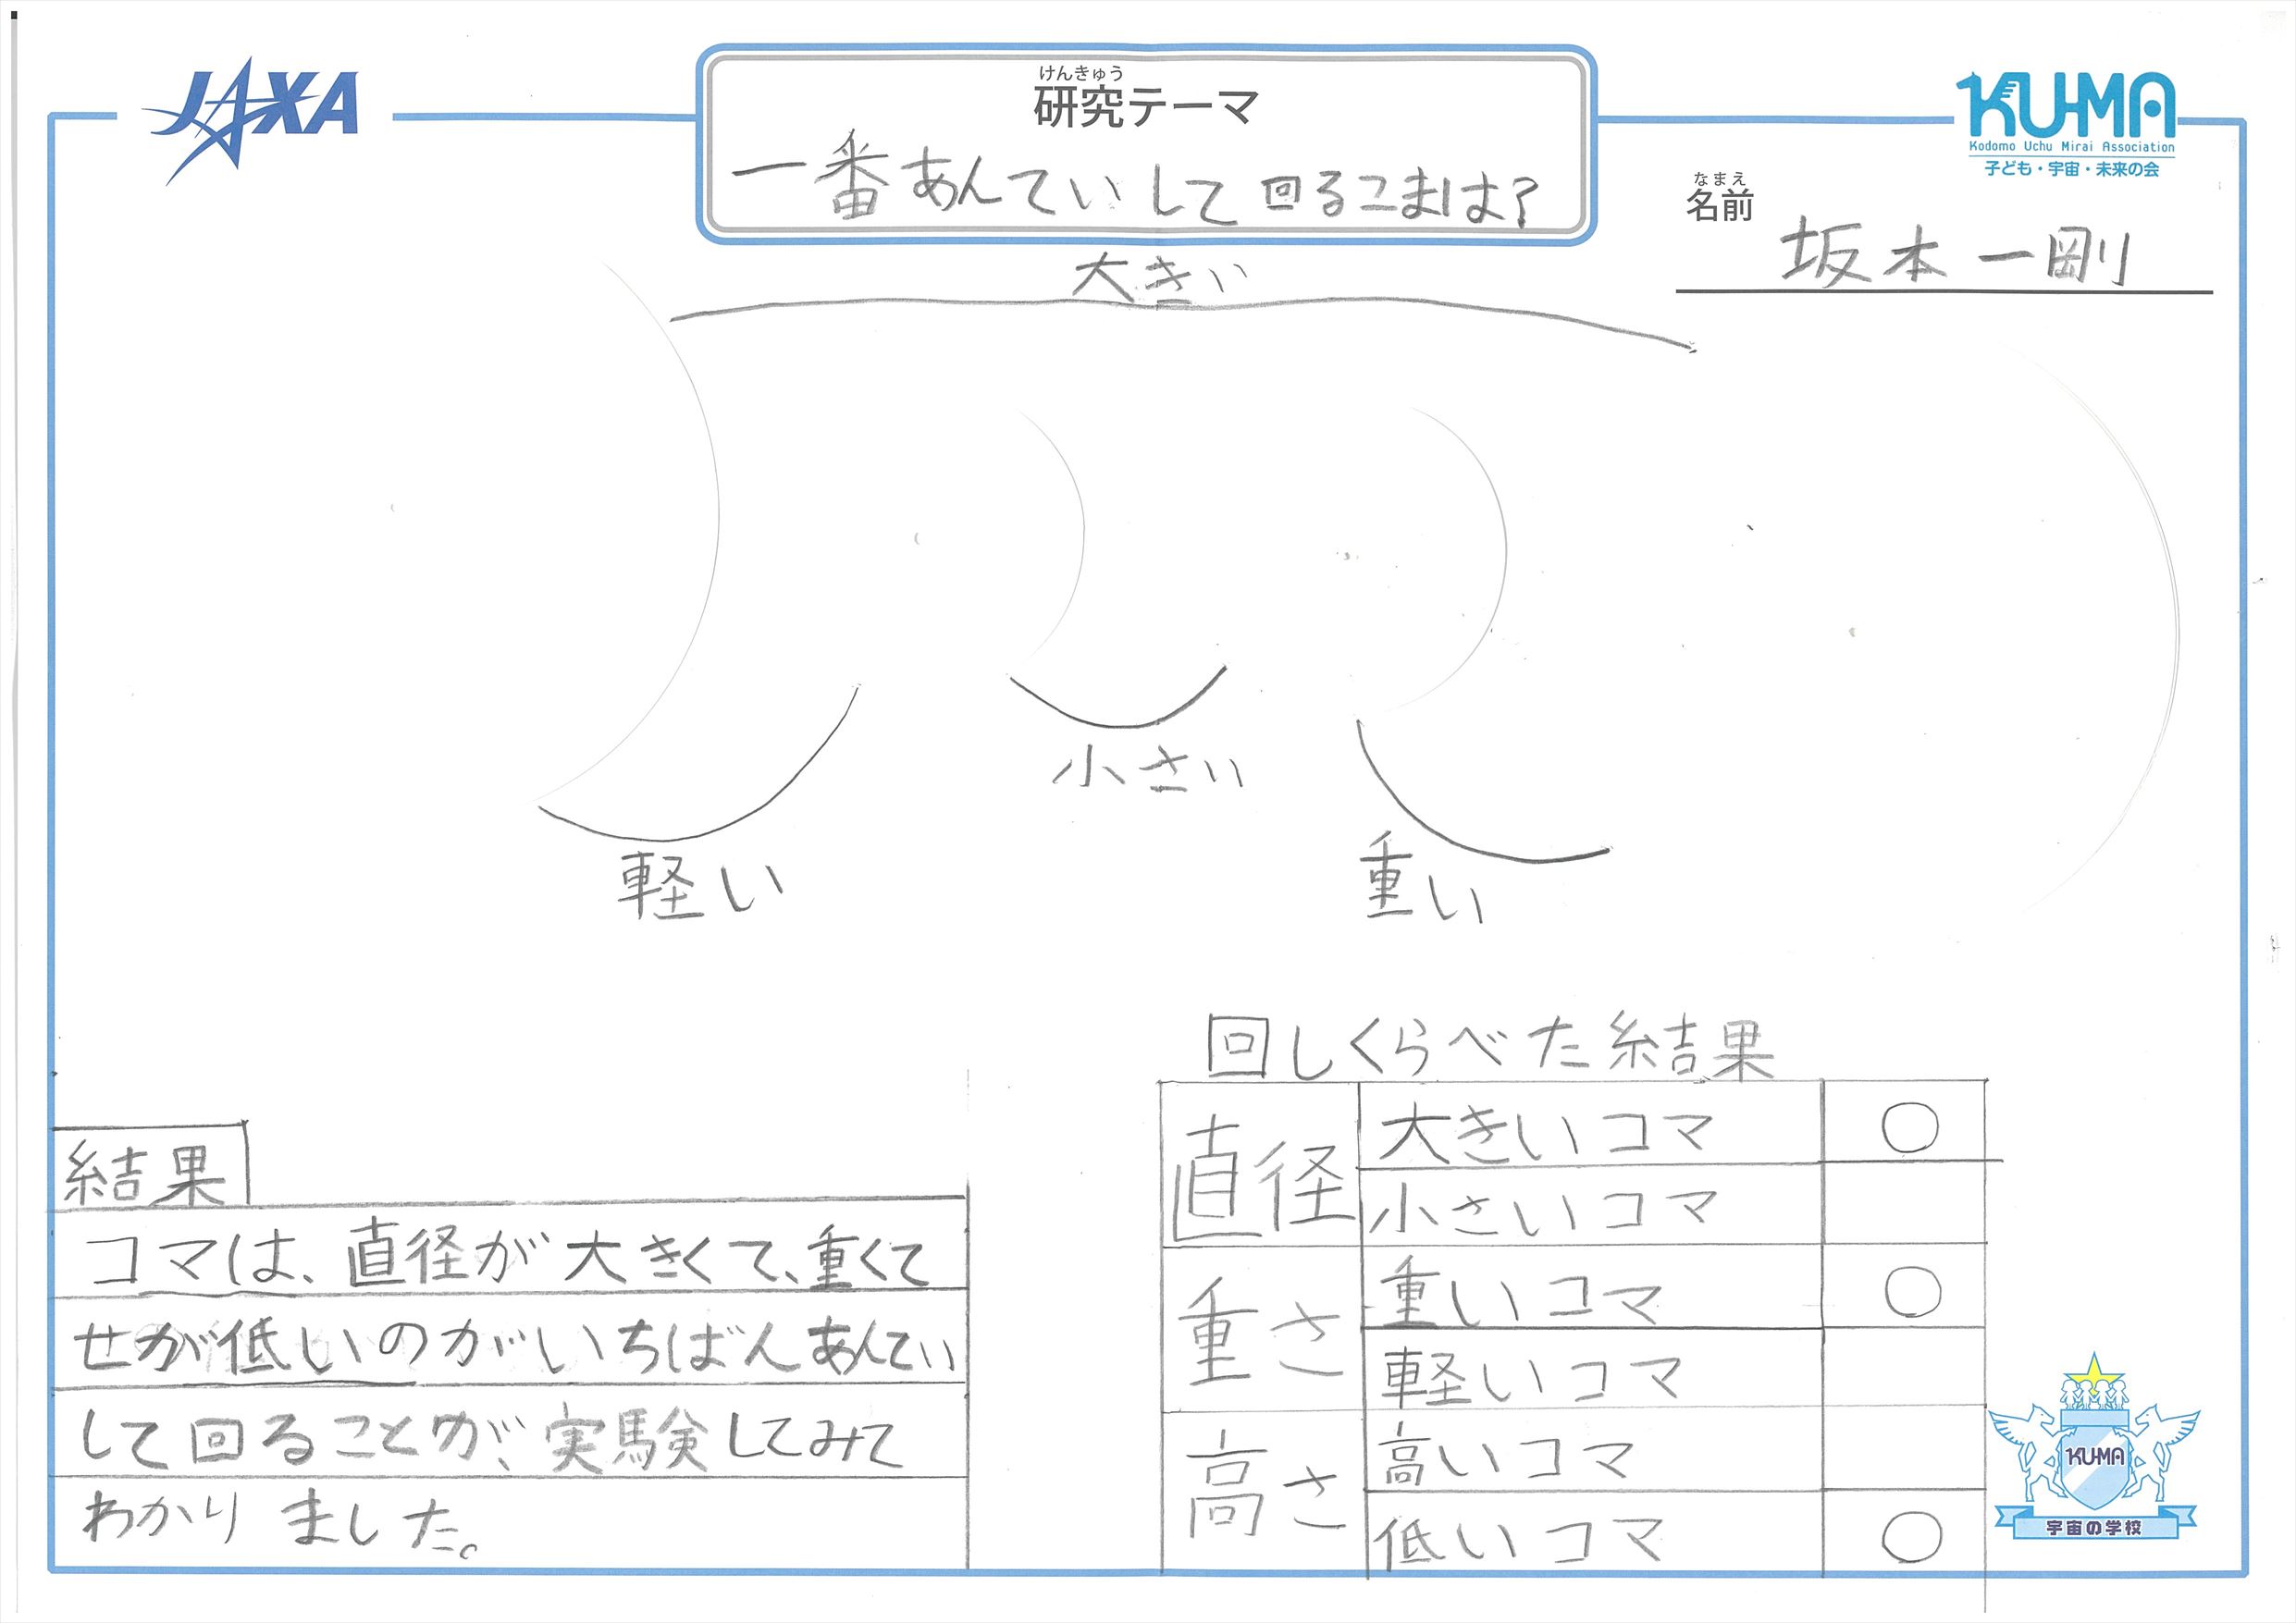 JAXA
けんきゅう
研究テーマ
一番あんていして回るこまは?
KU-MA
Kodomo Uchu Mirai Association
子ども・宇宙・未来の会
なまえ
名前
坂本一剛
大きい
小さい
軽い
重い
回しくらべた結果
直径
大きいコマ ○
小さいコマ
重さ
重いコマ ○
軽いコマ
高さ
高いコマ
低いコマ ○
結果
コマは、直径が大きくて、重くて
せが低いのがいちばんあんてい
して回ることが、実験してみて
わかりました。
KU-MA
宇宙の学校